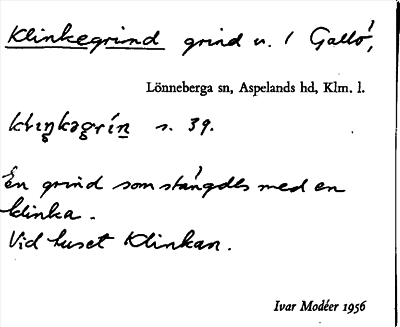 Klinkegrind grind u. / Gallö,
Lönneberga sn, Aspelands hd, Klm. l.
s. 39.
En grind som stängdes med en
klinka.
Vid huset Klinkan.
Ivar Modéer 1956